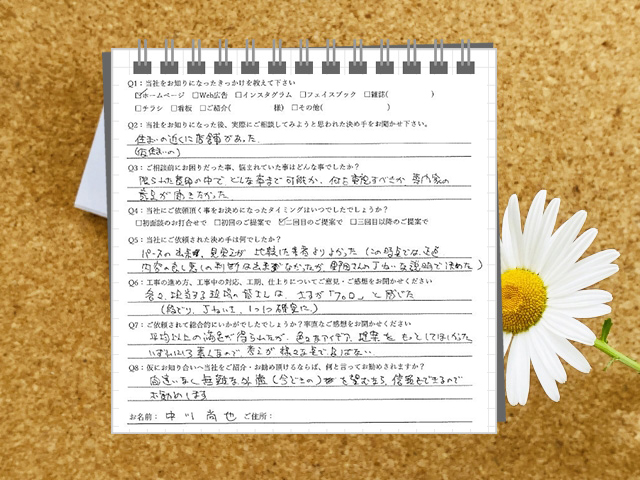 Q1：当社をお知りになったきっかけを教えて下さい
☑ホームページ □Web広告 □インスタグラム □フェイスブック □雑誌( )
□チラシ □看板 □ご紹介( 様) □その他( )
Q2：当社をお知りになった後、実際にご相談してみようと思われた決め手をお聞かせ下さい。
住まいの近くに店舗があった
(仮住まいの)
Q3：ご相談前にお困りだった事、悩まれていた事はどんな事でしたか？
限られた費用の中で、どんな事まで可能か、何を重視すべきか 専門家の
意見が聞きたかった
Q4：当社にご依頼頂く事をお決めになったタイミングはいつでしたでしょうか？
□初面談のお打合せで □初回のご提案で ☑二回目のご提案で □三回目以降のご提案で
Q5：当社にご依頼された決め手は何でしたか？
パースの出来栄、見栄えが 比較した業者よりよかった (この時点では
内容の良し悪しの判断は出来なかったが 野田さんの丁ねいな説明で決めた)
Q6：工事の進め方、工事中の対応、工期、仕上りについてご意見・ご感想をお聞かせください
各々、担当する現場の皆さんは、さすが「プロ」と感じた
(段どり、丁ねいさ、1つ1つ確実に)
Q7：ご依頼されて総合的にいかがでしたでしょうか？率直なご感想をお聞かせください
平均以上の満足が得られたが、色々なアイデア、提案をもっとしてほしかった
素人なので、考えが
Q8：仮にお知り合いへ当社をご紹介・お勧め頂けるならば、何と言ってお勧めされますか？
間違いなく 無難な (今どきの) を望むなら、信頼もできるので
お勧めします
お名前： 中川 尚也 ご住所：